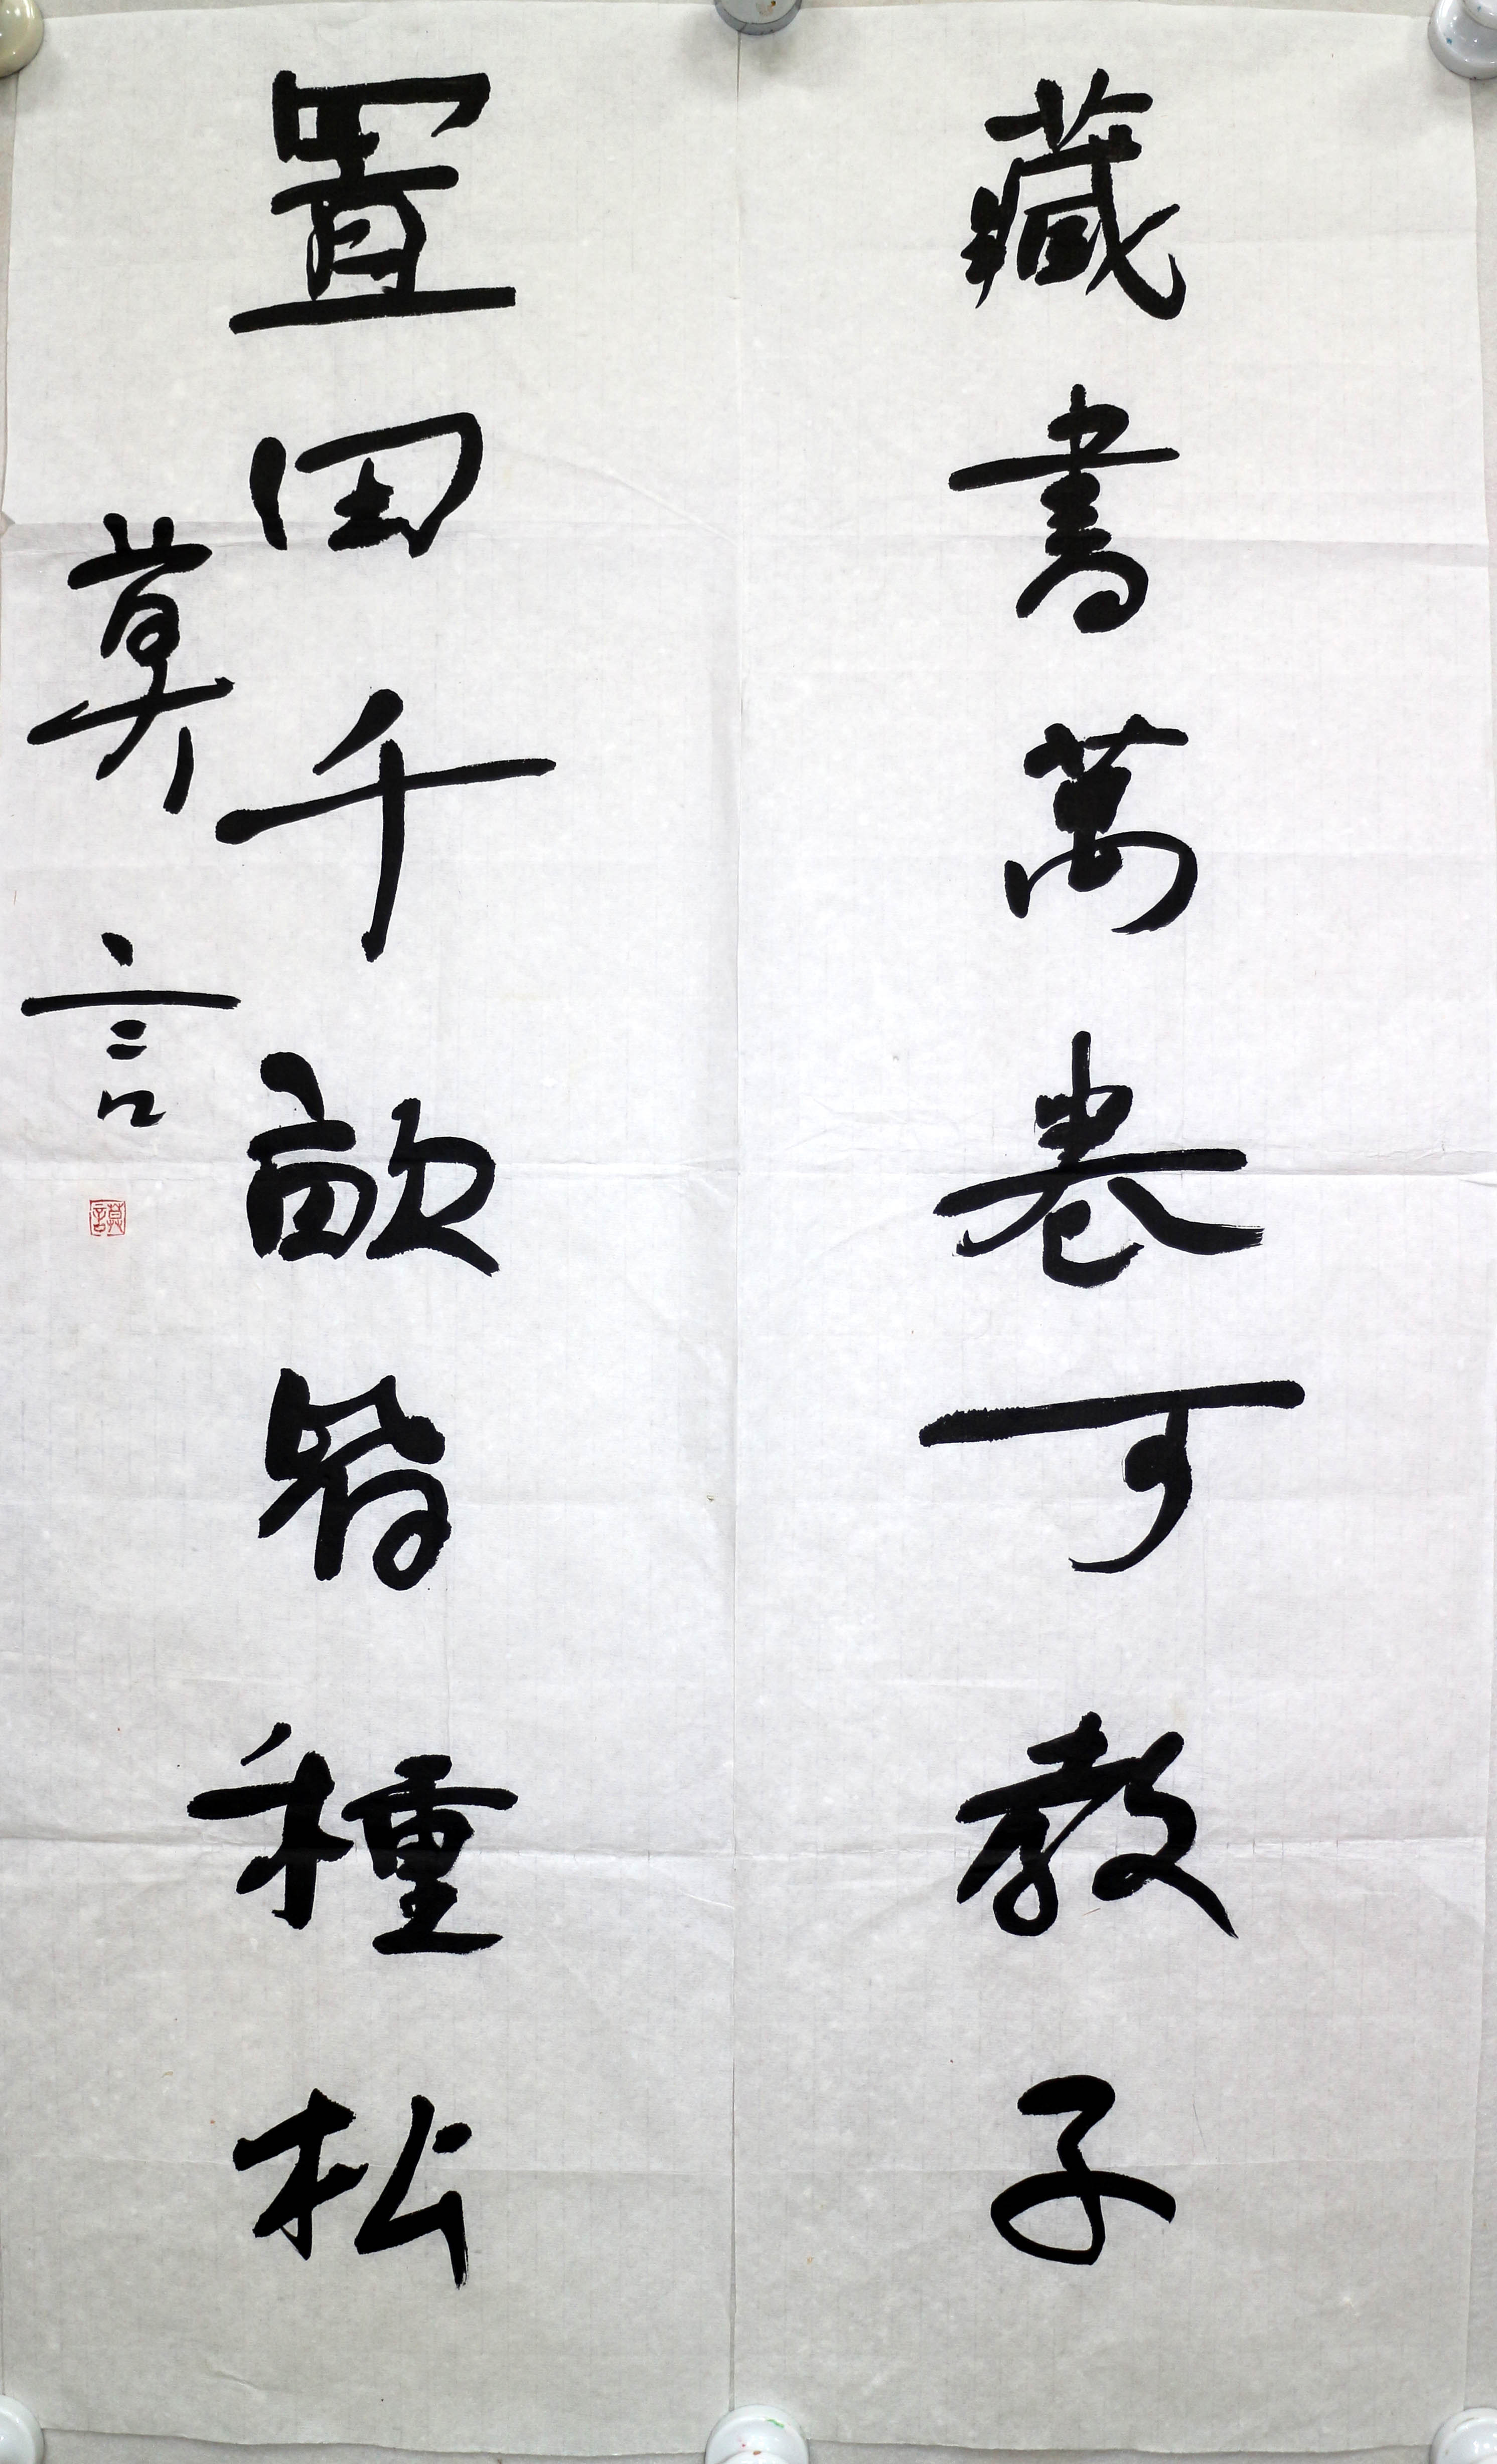 藏書萬卷可教子
置田千畝皆種松
莫言
莫言